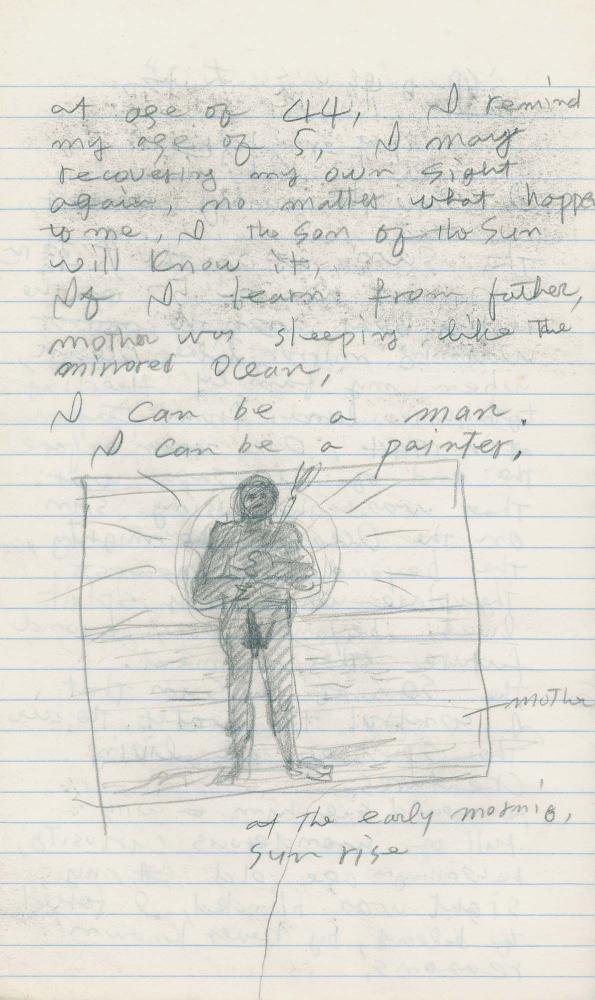 at age of 44, I remind
my age of 5, I may
recovering my own sight
again, no matter what happe
to me, I the son of the Sun
will know it,
If I learn from father,
mother was sleeping like the
mirrored Ocean,
I can be a man.
I can be a painter,
mother
at the early mornig,
sun rise